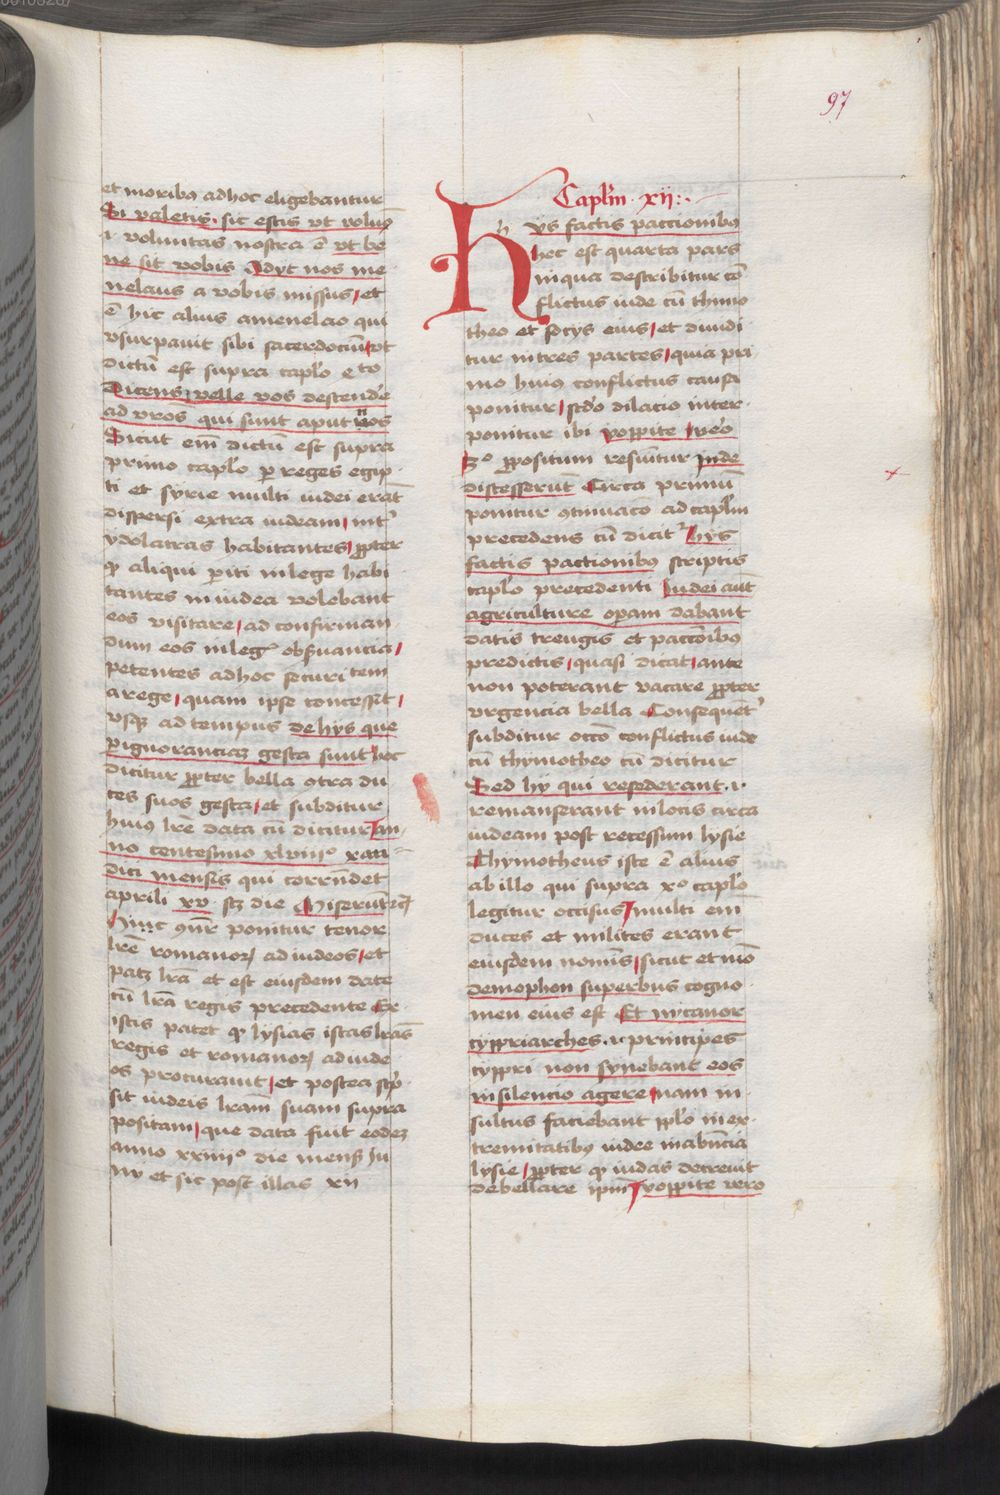 97
et moribus adhoc eligebantur
Si valetis. sic estis vt volum9
.i. voluntas nostra ē vt be
ne sit vobis Adyt nos me
nelaus a vobis missus, et
ē hic alius amenelao qui
vsurpauit sibi sacerdociū, vt
dictū est supra caplo e to
Dicens velle vos descendē
ad vros qui sunt aput nos
Sicut em dictū est supra
primo caplo p reges egip
ti et syrie multi iudei erāt
dispersi extra iudeam, int'
ydolatras habitantes, ppter
qp aliqui piti inlege habi
tantes in iudea volebant
eos visitare, ad confirman
dum eos inleg' obseruancia,
petentes adhoc securitem
arege, quam ipse concessit,
vsqz ad tempus de hys que
pignoranciaz gesta sunt hoc
dicitur ppter bella 9tra du
ces suos gesta, et subditur
huius lrē data cū dicitur An
no centesimo xlviii° xan
dici mensis qui corrūdet
aprili xv. scz die Miserūt rc
Hinc 9nr ponitur tenor
lrē romanor) ad iudeos, et
patz lrā et est eiusdem date
cū lrā regis precedente Ex
istis patet qp lysias istas lrās
regis et romanor) ad iude
os procurauit, et postea scp
sit iudeis lram suam supra
positam, que data fuit eodez
anno xxiiii° die mens) Iu
ny et sic post illas xii
Caplm xij:.
Hys factis paccionibus
hoc est quarta pars
in qua describitur cō
flictus iude cū thimo
theo et socys eius, et diuidi
tur in tres partes, quia pri
mo huius conflictus causa
ponitur, scdo dilacio inter
ponitur ibi yoppite, vero
3° ppositum resumitur Inde
discesserūt Circa primū
ponitur 9tinuaco ad caplm
precedens cū dicit' hys
factis pactionibus scriptis
caplo precedenti Iudei aūt
agriculture opam dabant
datis treugis et paccoibus
predictis, quasi dicat, ante
non poterant vacare ppter
vrgencia bella Consequēt'
subditur occo conflictus iude
cū thymotheo cū dicitur
Sed hy qui resederant .i.
remanserant in locis circa
iudeam post recessum lysie
Thymotheus iste ē alius
ab illo qui supra x° caplo
legitur occisus, multi em
duces et milites erant
eiusdem nominis, sicut et mō
demophon superbus cogno
men eius est Et nycanor
cypriarches .i. principes
cypri non synebant eos
in silencio agere, nam in
sultus faciebant pplo in ex
tremitatibus iudee inabūcia
lysie, ppter qp iudas decreuit
debellare ipm, yoppite vero